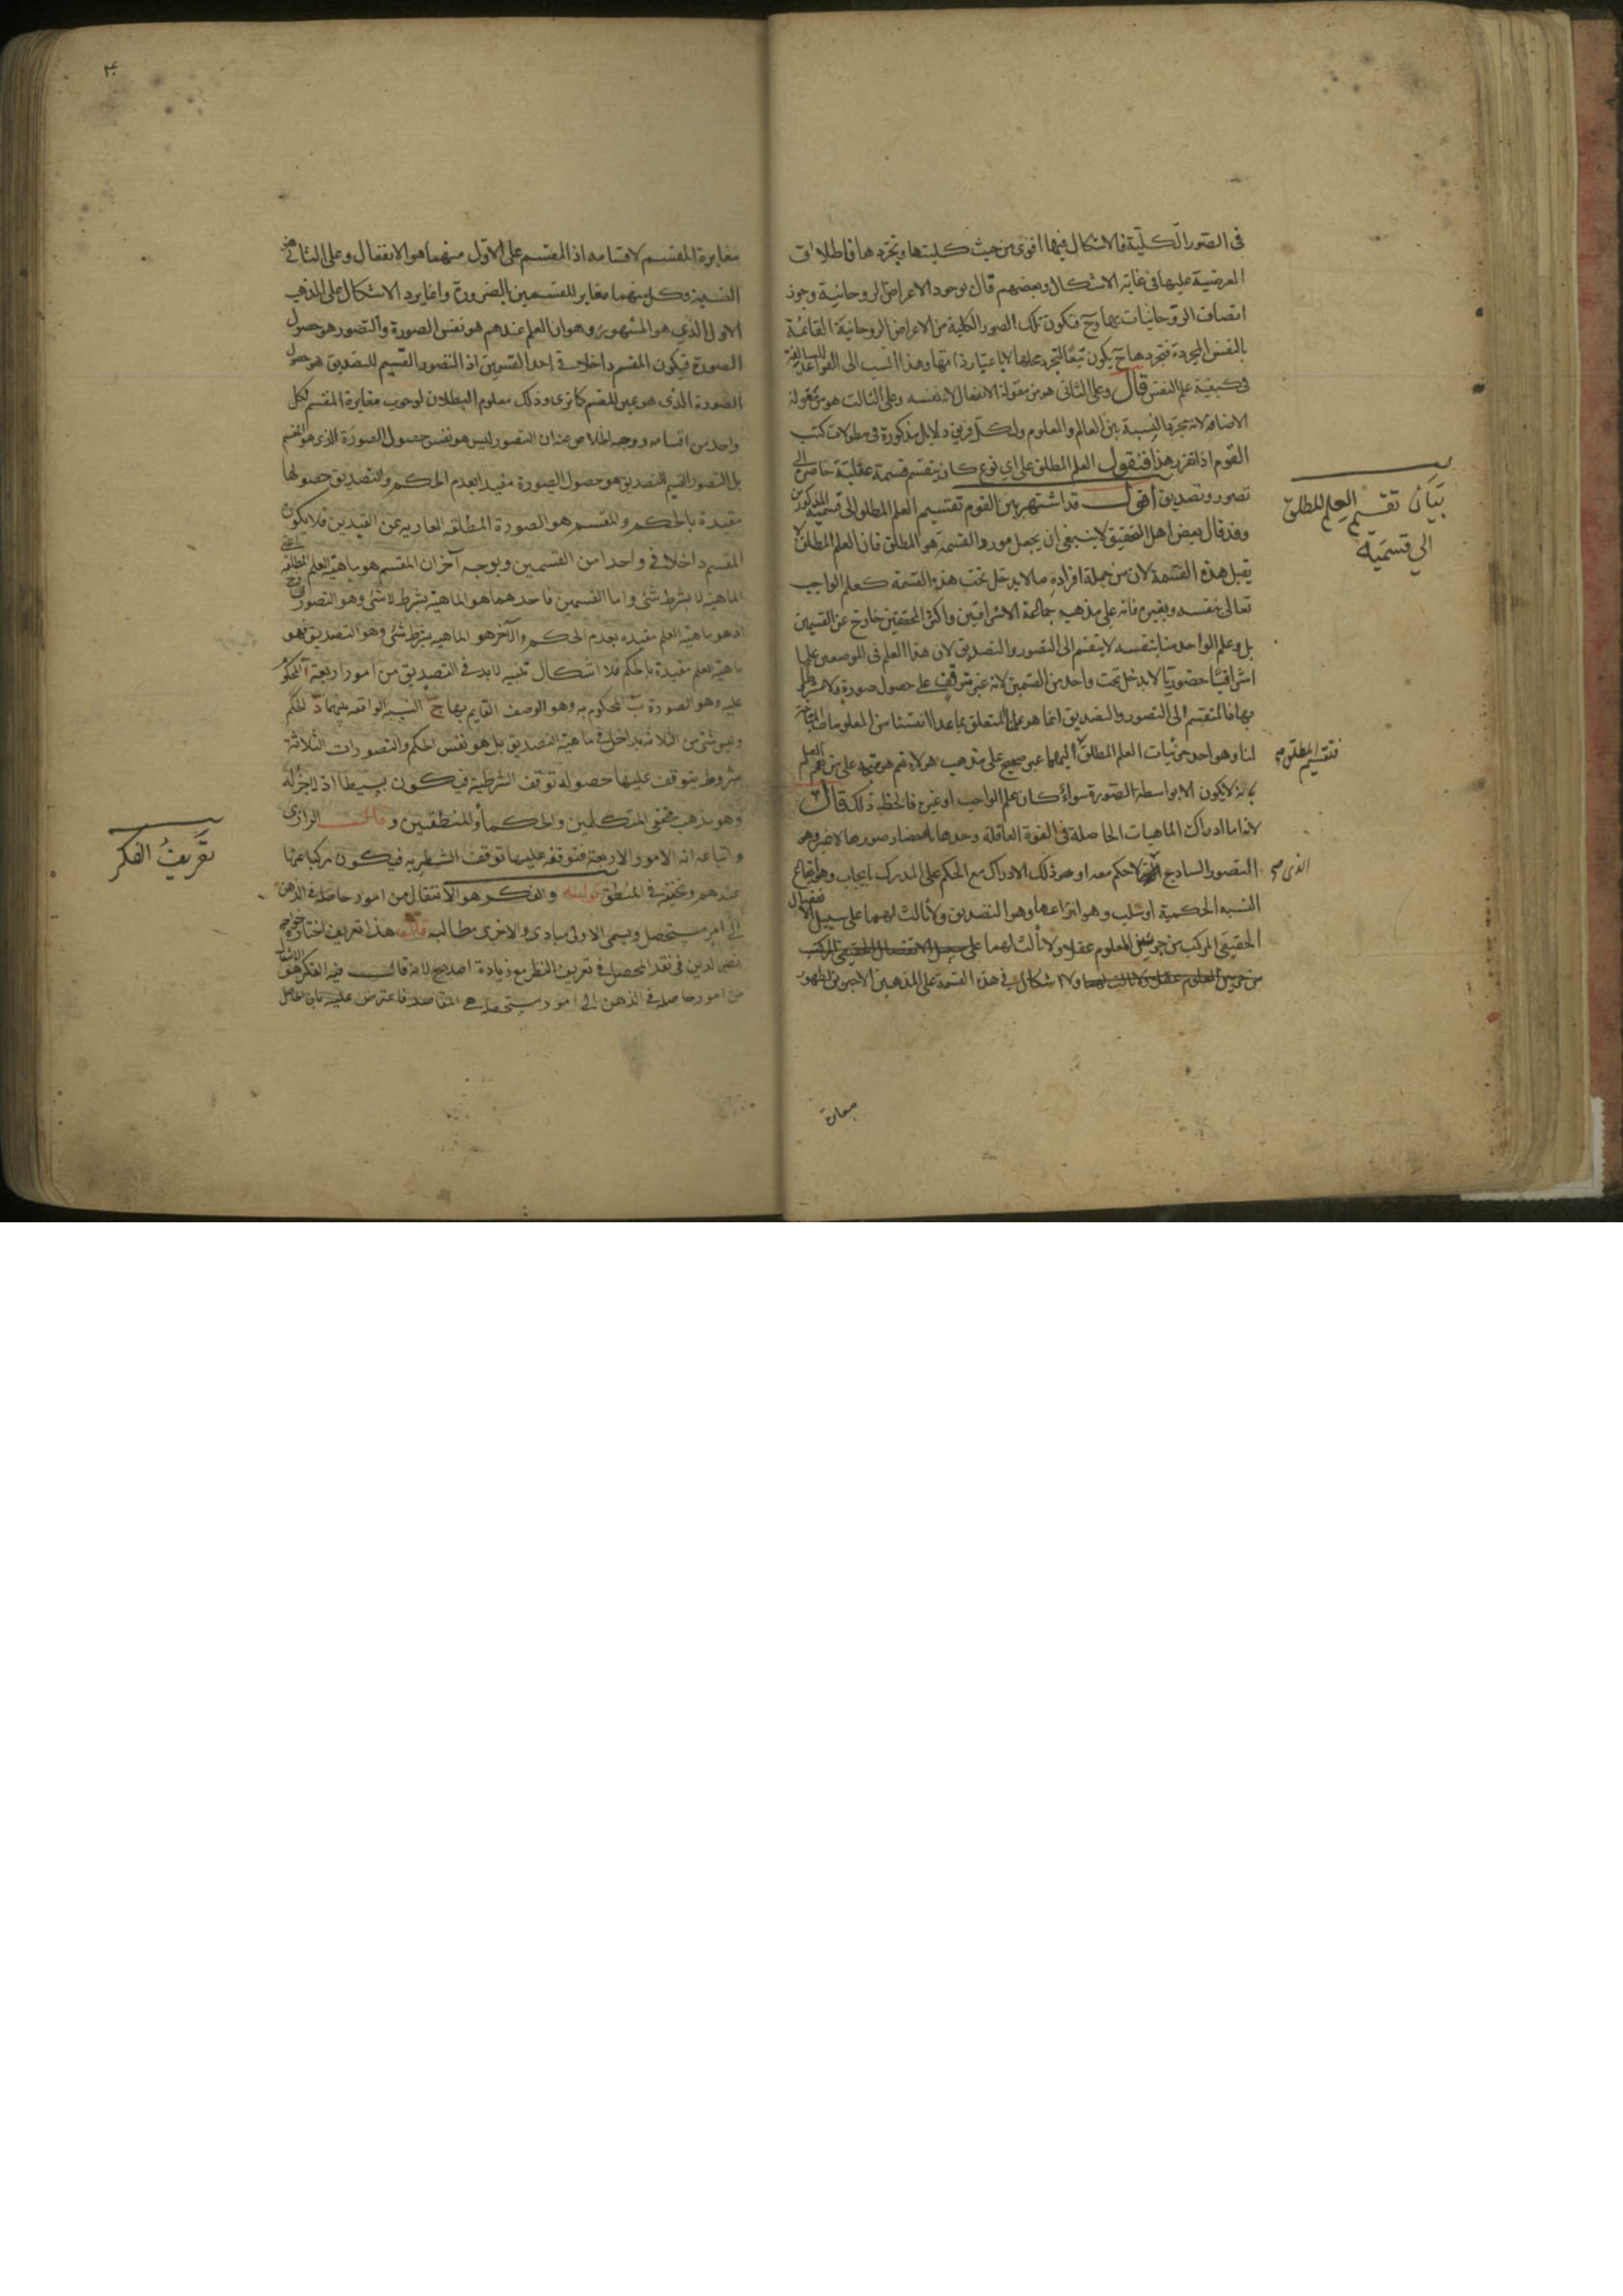 في الصور الكلية فالاشكال فيها اقوى من حيث كليتها وتجردها فاطلاق
العرضية عليها في غاية الاشكال وبعضهم قال بوجود الاعراض الروحانية وجوز
اتصاف الروحانيات بها وح فتكون تلك الصور الكلية من الاعراض الروحانية القائمة
بالنفس المجردة فتجردها ح يكون تبعا لتجرد محلها لا باعتبار ذاتها وهذا انسب الى القواعد
في كيفية علم النفس قال وعلى الثاني هو من مقولة الانفعال لانه نفسه وعلى الثالث هو من مقولة
الاضافة لانه مجرد النسبة بين العالم والمعلوم ولكل فريق دلايل مذكورة في مطولات كتب
القوم اذا تقرر هذا فنقول العلم المطلق على اي نوع كان ينقسم قسمة عقلية حاصرة الى
تصور وتصديق اقول قد اشتهر بين القوم تقسيم العلم المطلق الى قسميه المذكورين
وقد قال بعض اهل التحقيق لا ينبغي ان يجعل مورد القسمة هو المطلق فان العلم المطلق لا
يقبل هذه القسمة لان من جملة افراده ما لا يدخل تحت هذه القسمة كعلم الواجب
تعالى بنفسه وبغيره فانه على مذهب جماعة الاشراقيين واكثر المحققين خارج عن القسمين
بل وعلم الواحد منا بنفسه لا ينقسم الى التصور والتصديق لان هذا العلم في الموضعين علما
اشراقيا حضوريا لا يدخل تحت واحد من القسمين لانه غير متوقف على حصول صورة ولا مشروط
بها فالمنقسم الى التصور والتصديق انما هو علمنا المتعلق بما عدا انفسنا من المعلومات الغائبة
لنا وهو احد جزئيات العلم المطلق اليهما غير صحيح على مذهب هولاء نعم هو متجه على من عمم العلم
بانه لا يكون الا بواسطة الصورة سواء كان علم الواجب او غيره فالحظ ذلك قال
لانه اما ادراك الماهيات الحاصلة في القوة العاقلة وحدها باحضار صورها لا غير وهو
التصور الساذج لا حكم معه او هو ذلك الادراك مع الحكم على المدرك بايجاب وهو ايقاع
النسبة الحكمية او سلب وهو انتزاعها وهو التصديق ولا ثالث لهما على سبيل الانفصال
الحقيقي المركب من جزئين المعلوم عقلا ولا ثالث لهما على سبيل الانفصال الحقيقي المركب
من جزئين المعلوم عقلا ولا ثالث لهما ولا اشكال في هذه القسمة على المذهبين الاخيرين لظهور
بيان تقسيم العلم المطلق
الي قسميه
فتقسيم المطلق صح
الذي صح
مغايرة
۴
مغايرة المقسم لاقسامه اذ المقسم على الاول منهما هو الانفعال وعلى الثاني هو
النسبة وكل منهما مغاير للقسمين بالضرورة وانما يرد الاشكال على المذهب
الاول الذي هو المشهور وهو ان العلم عندهم هو نفس الصورة والتصور هو حصول
الصورة فيكون المقسم داخلا في احد القسمين اذ التصور القسيم للتصديق هو حصول
الصورة الذي هو عين المقسم كما ترى وذلك معلوم البطلان لوجوب مغايرة المقسم لكل
واحد من اقسامه ووجه الخلاص عنه ان التصور ليس هو نفس حصول الصورة الذي هو المقسم
بل التصور القسيم للتصديق هو حصول الصورة مقيد بعدم الحكم والتصديق حصولها
مقيدة بالحكم والمقسم هو الصورة المطلقة العارية عن القيدين فلا يكون
المقسم داخلا في واحد من القسمين وبوجه آخر ان المقسم هو ماهية العلم المطلقة اعني
الماهية لا بشرط شئ واما القسمين فاحدهما هو الماهية بشرط لا شئ وهو التصور الساذج
اذ هو ماهية العلم مقيده بعدم الحكم والآخر هو الماهية بشرط شئ وهو التصديق فهو
ماهية العلم مقيدة بالحكم فلا اشكال تنبيه لا بد في التصديق من امور اربعة آ المحكوم
عليه وهو الصورة ب المحكوم به وهو الوصف القايم بها ج النسبة الواقعه بينهما د الحكم
وليس شئ من الثلاثة بداخل في ماهية التصديق بل هو نفس الحكم والتصورات الثلاثة
شروط يتوقف عليها حصوله توقف الشرطية فيكون بسيطا اذ لا جزء له
وهو مذهب محققي المتكلمين والحكماء والمنطقيين وقال الرازي
واتباعه انه الامور الاربعة فتوقفه عليها توقف الشطريه فيكون مركبا عنها
عندهم وتحقيقه في المنطق قوله والفكر هو الانتقال من امور حاصلة في الذهن
الى امر مستحصل ويسمى الاولى مبادي والاخرى مطالب قال هذا تعريف اختاره خواجه
نصير الدين في نقد المحصل في تعريف النظر مع زيادة اصلاح لانه قال فيه الفكر هو الانتقال
من امور حاصلة في الذهن الى امور مستحصلة هي المقاصد فاعترض عليه بان تحاصل
تعريف الفكر